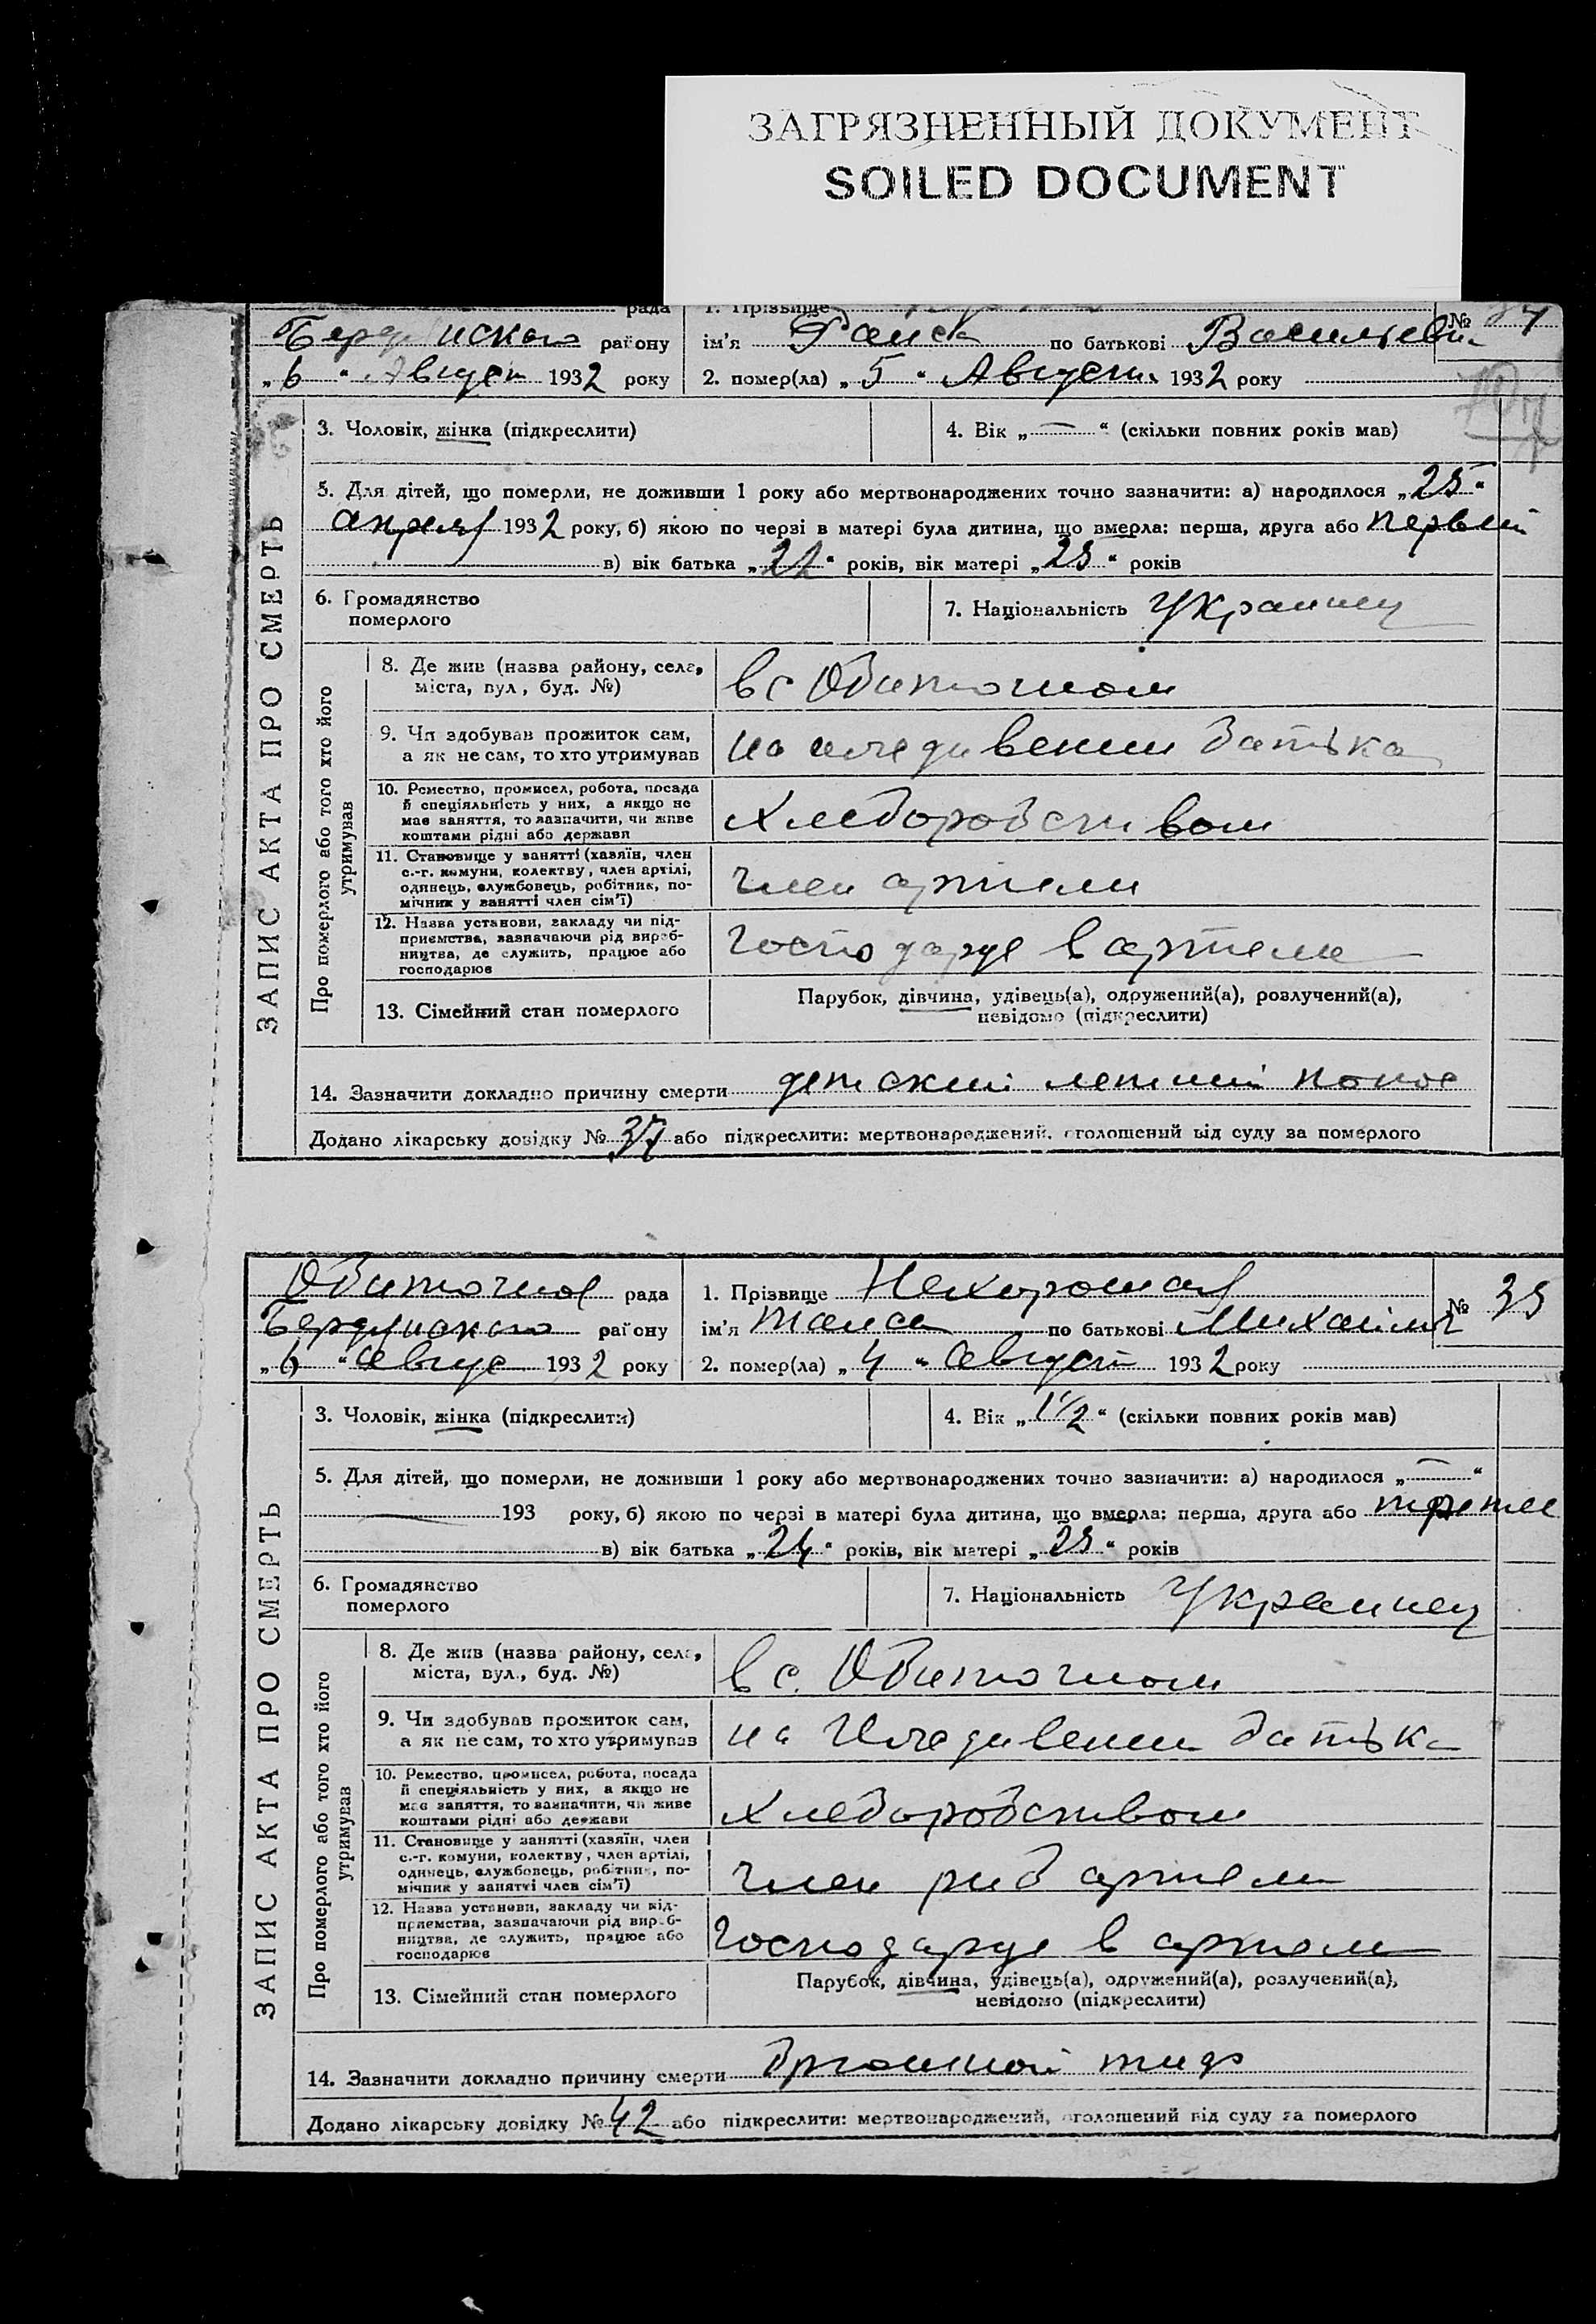 ЗАГРЯЗНЕННЫЙ ДОКУМЕНТ
SOILED DOCUMENT
рада
1. Прізвище
№ 34
району
ім'я Раиса по батькові Васильевн
„6“ Август 1932 року
2. помер(ла) „5“ Августа 1932 року
ЗАПИС АКТА ПРО СМЕРТЬ
3. Чоловік, жінка (підкреслити)
4. Вік „—“ (скільки повних років мав)
5. Для дітей, що померли, не доживши 1 року або мертвонароджених точно зазначити: а) народилося „25“
апреля 1932 року, б) якою по черзі в матері була дитина, що вмерла: перша, друга або первый
в) вік батька „22“ років, вік матері „23“ років
6. Громадянство
померлого
7. Національність Украинец
Про померлого або того хто його
утримував
8. Де жив (назва району, села,
міста, вул., буд. №)
в с Обиточном
9. Чи здобував прожиток сам,
а як не сам, то хто утримував
на иждивении батька
10. Ремество, промисел, робота, посада
й спеціяльність у них, а якщо не
має заняття, то зазначити, чи живе
коштами рідні або держави
Хлеборобством
11. Становище у занятті (хазяїн, член
с.-г. комуни, колектву, член артілі,
одинець, службовець, робітник, по-
мічник у занятті член сім'ї)
член артели
12. Назва установи, закладу чи під-
приємства, зазначаючи рід вироб-
ництва, де служить, працює або
господарює
Господарує в артели
13. Сімейний стан померлого
Парубок, дівчина, удівець(а), одружений(а), розлучений(а),
невідомо (підкреслити)
14. Зазначити докладно причину смерти детский летний понос
Додано лікарську довідку № 37 або підкреслити: мертвонароджений, оголошений від суду за померлого
Обиточное рада
1. Прізвище Нехорошая
№ 35
Бердянского району
ім'я Таиса по батькові Михайлов
„6“ Авгус 1932 року
2. помер(ла) „4“ Август 1932 року
ЗАПИС АКТА ПРО СМЕРТЬ
3. Чоловік, жінка (підкреслити)
4. Вік „1 1/2“ (скільки повних років мав)
5. Для дітей, що померли, не доживши 1 року або мертвонароджених точно зазначити: а) народилося „—“
193 року, б) якою по черзі в матері була дитина, що вмерла: перша, друга або третее
в) вік батька „24“ років, вік матері „23“ років
6. Громадянство
померлого
7. Національність Украинец
Про померлого або того хто його
утримував
8. Де жив (назва району, села,
міста, вул., буд. №)
в с. Обиточном
9. Чи здобував прожиток сам,
а як не сам, то хто утримував
на Иждивении батька
10. Ремество, промисел, робота, посада
й спеціяльність у них, а якщо не
має заняття, то зазначити, чи живе
коштами рідні або держави
Хлеборобством
11. Становище у занятті (хазяїн, член
с.-г. комуни, колектву, член артілі,
одинець, службовець, робітник, по-
мічник у занятті член сім'ї)
член риб артели
12. Назва установи, закладу чи під-
приємства, зазначаючи рід вироб-
ництва, де служить, працює або
господарює
Господарує в артели
13. Сімейний стан померлого
Парубок, дівчина, удівець(а), одружений(а), розлучений(а),
невідомо (підкреслити)
14. Зазначити докладно причину смерти брюшной тиф
Додано лікарську довідку № 42 або підкреслити: мертвонароджений, оголошений від суду за померлого